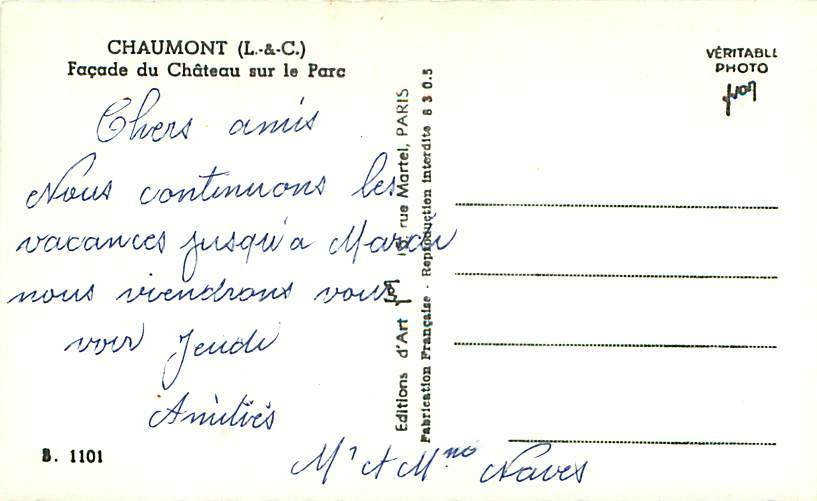 CHAUMONT (L.-&-C.)
Façade du Château sur le Parc
Chers amis
Nous continuons les
vacances jusqu'a Mardi
nous viendrons vous
voir Jeudi
Amitiés
Mr et Mme Naves
B. 1101
Editions d'Art Yvon 15, rue Martel, PARIS
Fabrication Française - Reproduction interdite 6 3 0.5
VÉRITABLE
PHOTO
Yvon